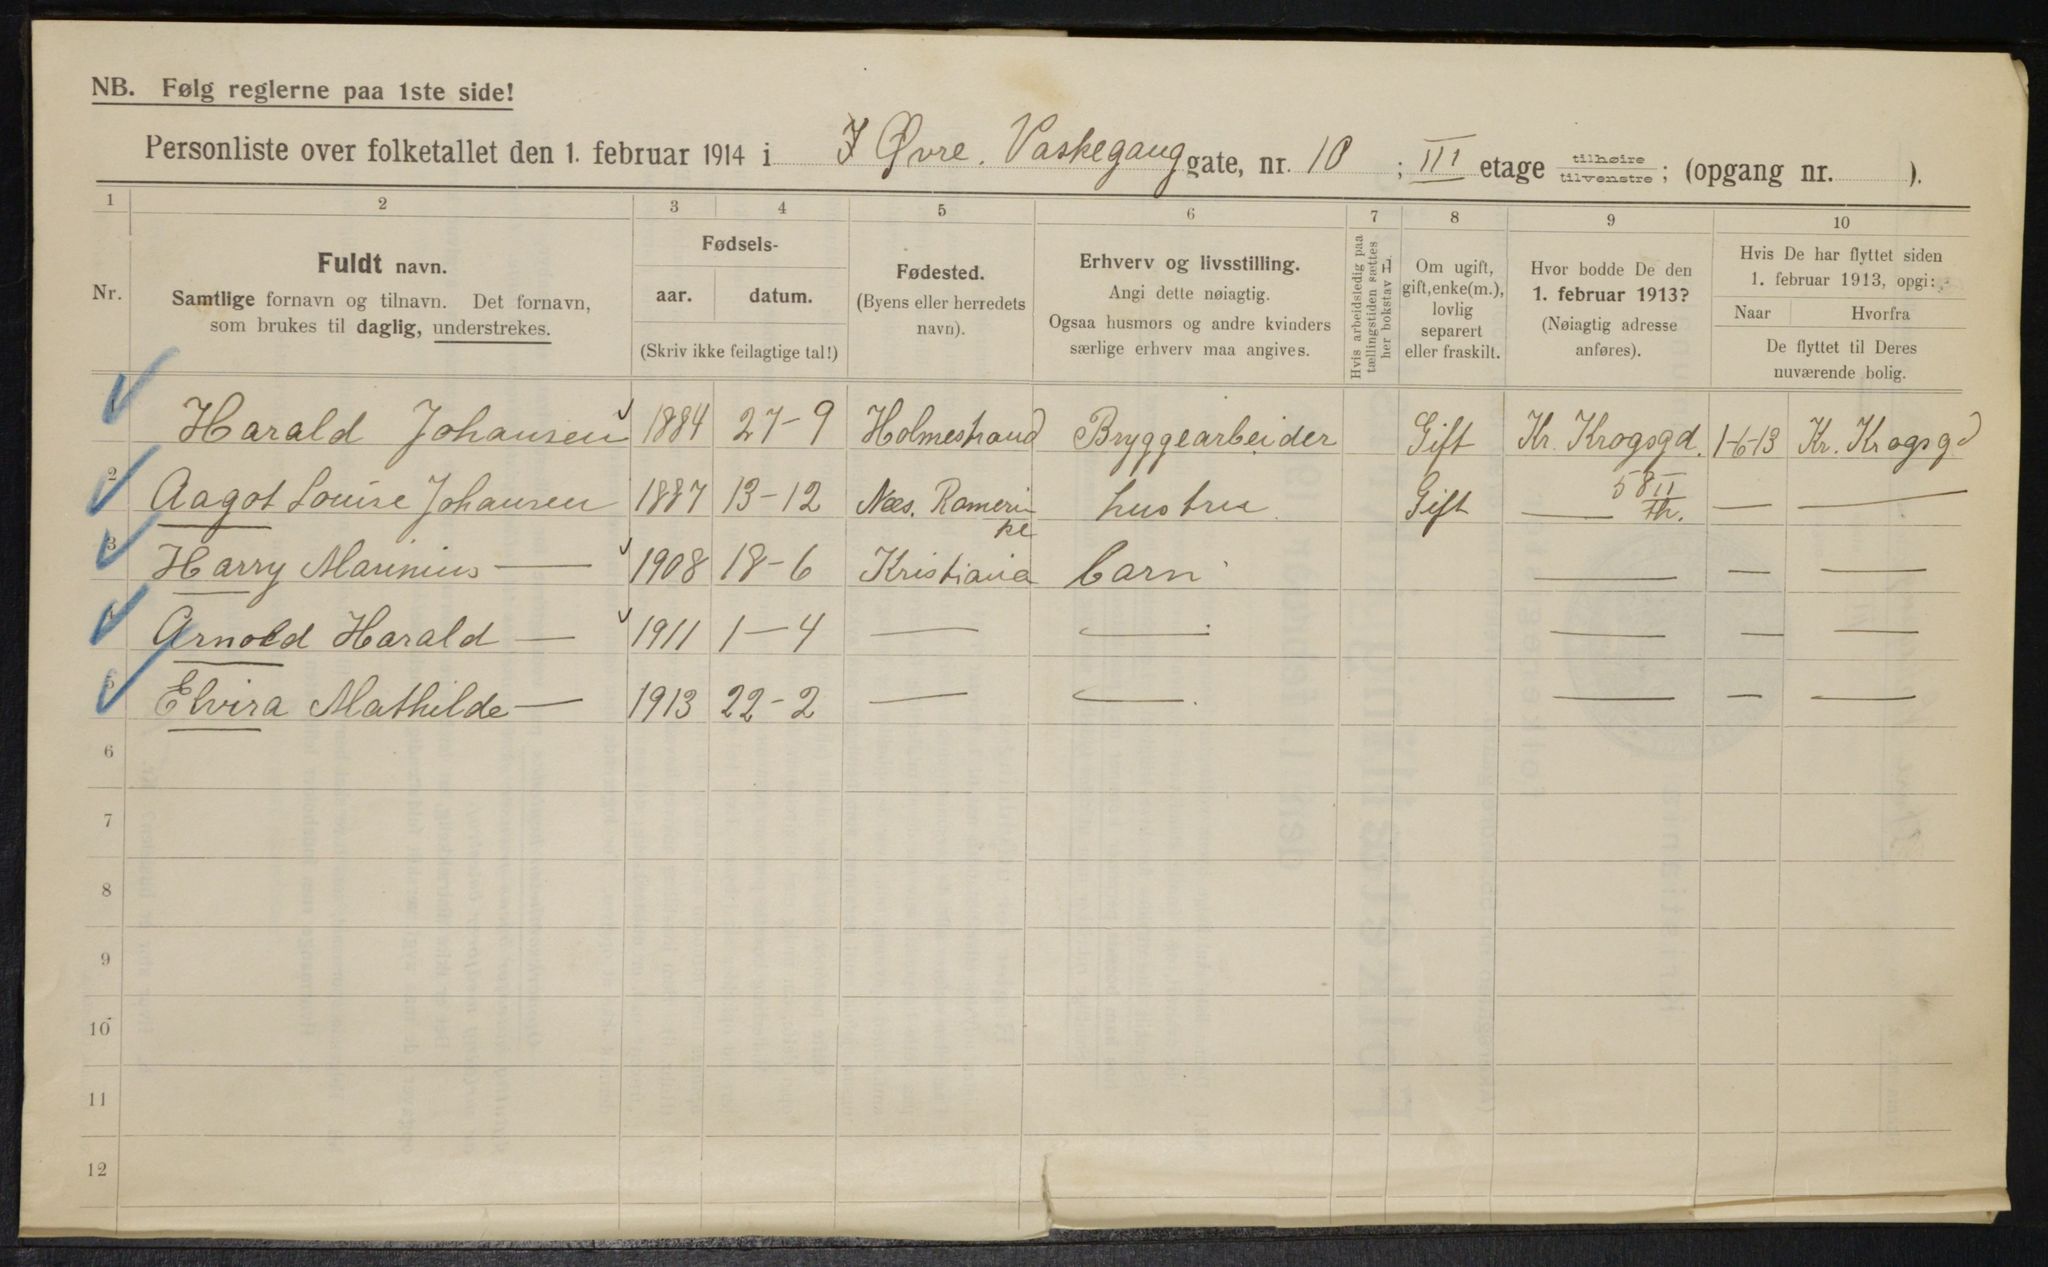 NB. Følg reglerne paa 1ste side!
Personliste over folketallet den 1. februar 1914 i Øvre. Vaskegang gate, nr. 10 ; III etage tilhøire tilvenstre ; (opgang nr. ).
1 2 3 4 5 6 7 8 9 10
Nr.
Fuldt navn.
Samtlige fornavn og tilnavn. Det fornavn,
som brukes til daglig, understrekes.
Fødsels-
aar. datum.
(Skriv ikke feilagtige tal!)
Fødested.
(Byens eller herredets
navn).
Erhverv og livsstilling.
Angi dette nøiagtig.
Ogsaa husmors og andre kvinders
særlige erhverv maa angives.
Hvis arbeidsledig paa
tællingstiden sættes
her bokstav L.
Om ugift,
gift, enke(m.),
lovlig
separert
eller fraskilt.
Hvor bodde De den
1. februar 1913?
(Nøiagtig adresse
anføres).
Hvis De har flyttet siden
1. februar 1913, opgi:
Naar Hvorfra
De flyttet til Deres
nuværende bolig.
1 Harald Johansen 1884 27-9 Holmestrand Bryggearbeider Gift Kr. Krogsgd. 1-6-13 Kr. Krogsgd
58 II
th.
2 Aagot Louise Johansen 1887 13-12 Næs. Romerike hustru Gift — — —
3 Harry Marinius — 1908 18-6 Kristiania barn — — —
4 Arnold Harald — 1911 1-4 — — — — —
5 Elvira Mathilde — 1913 22-2 — — — — —
6
7
8
9
10
11
12